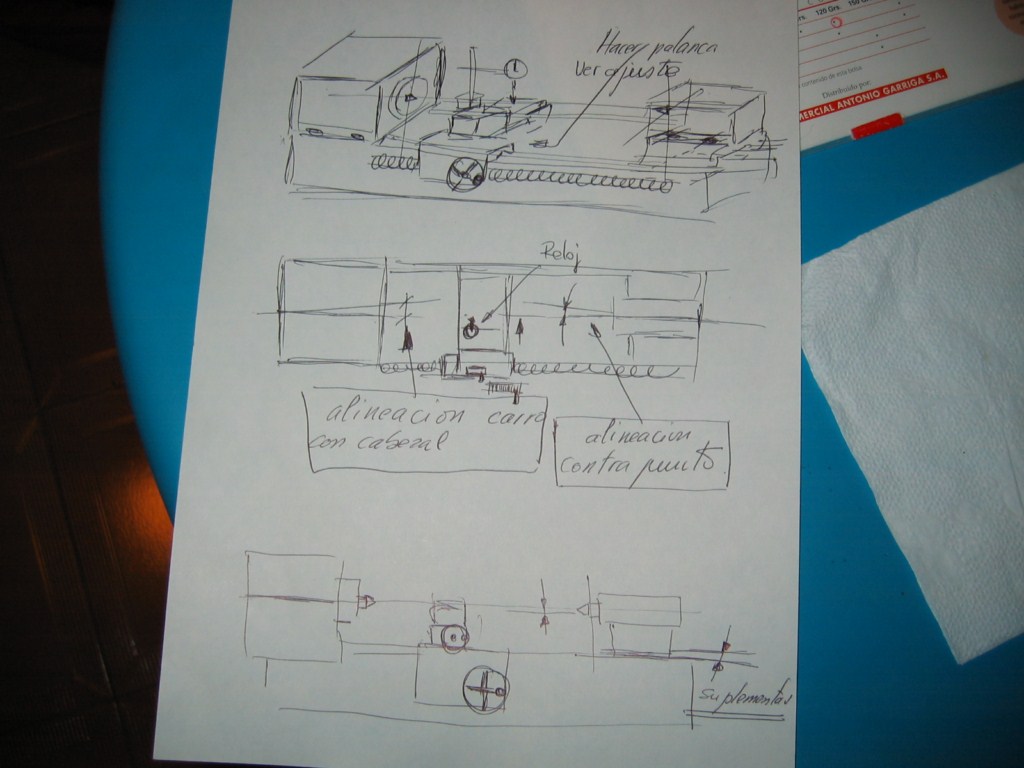 Hacer palanca
Ver ajuste
Reloj
alineacion carro
con cabezal
alineacion
contra punto
suplementos
120 Grs.
Distribuido por:
MERCIAL ANTONIO GARRIGA S.A.